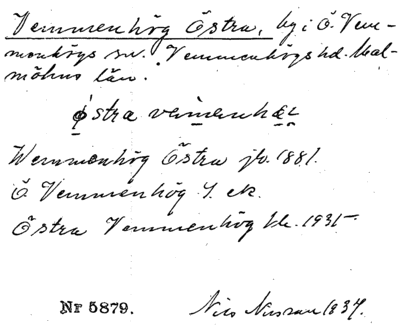 Vemmenhög Östra, by i Ö. Vem-
menhögs sn. Vemmenhögs hd. Mal-
möhus län.
östra vemenhög
Wemmenhög Östra jb. 1881.
Ö. Vemmenhög Y. ek.
Östra Vemmenhög tk. 1935
Nr 5879.
Nils 1934.